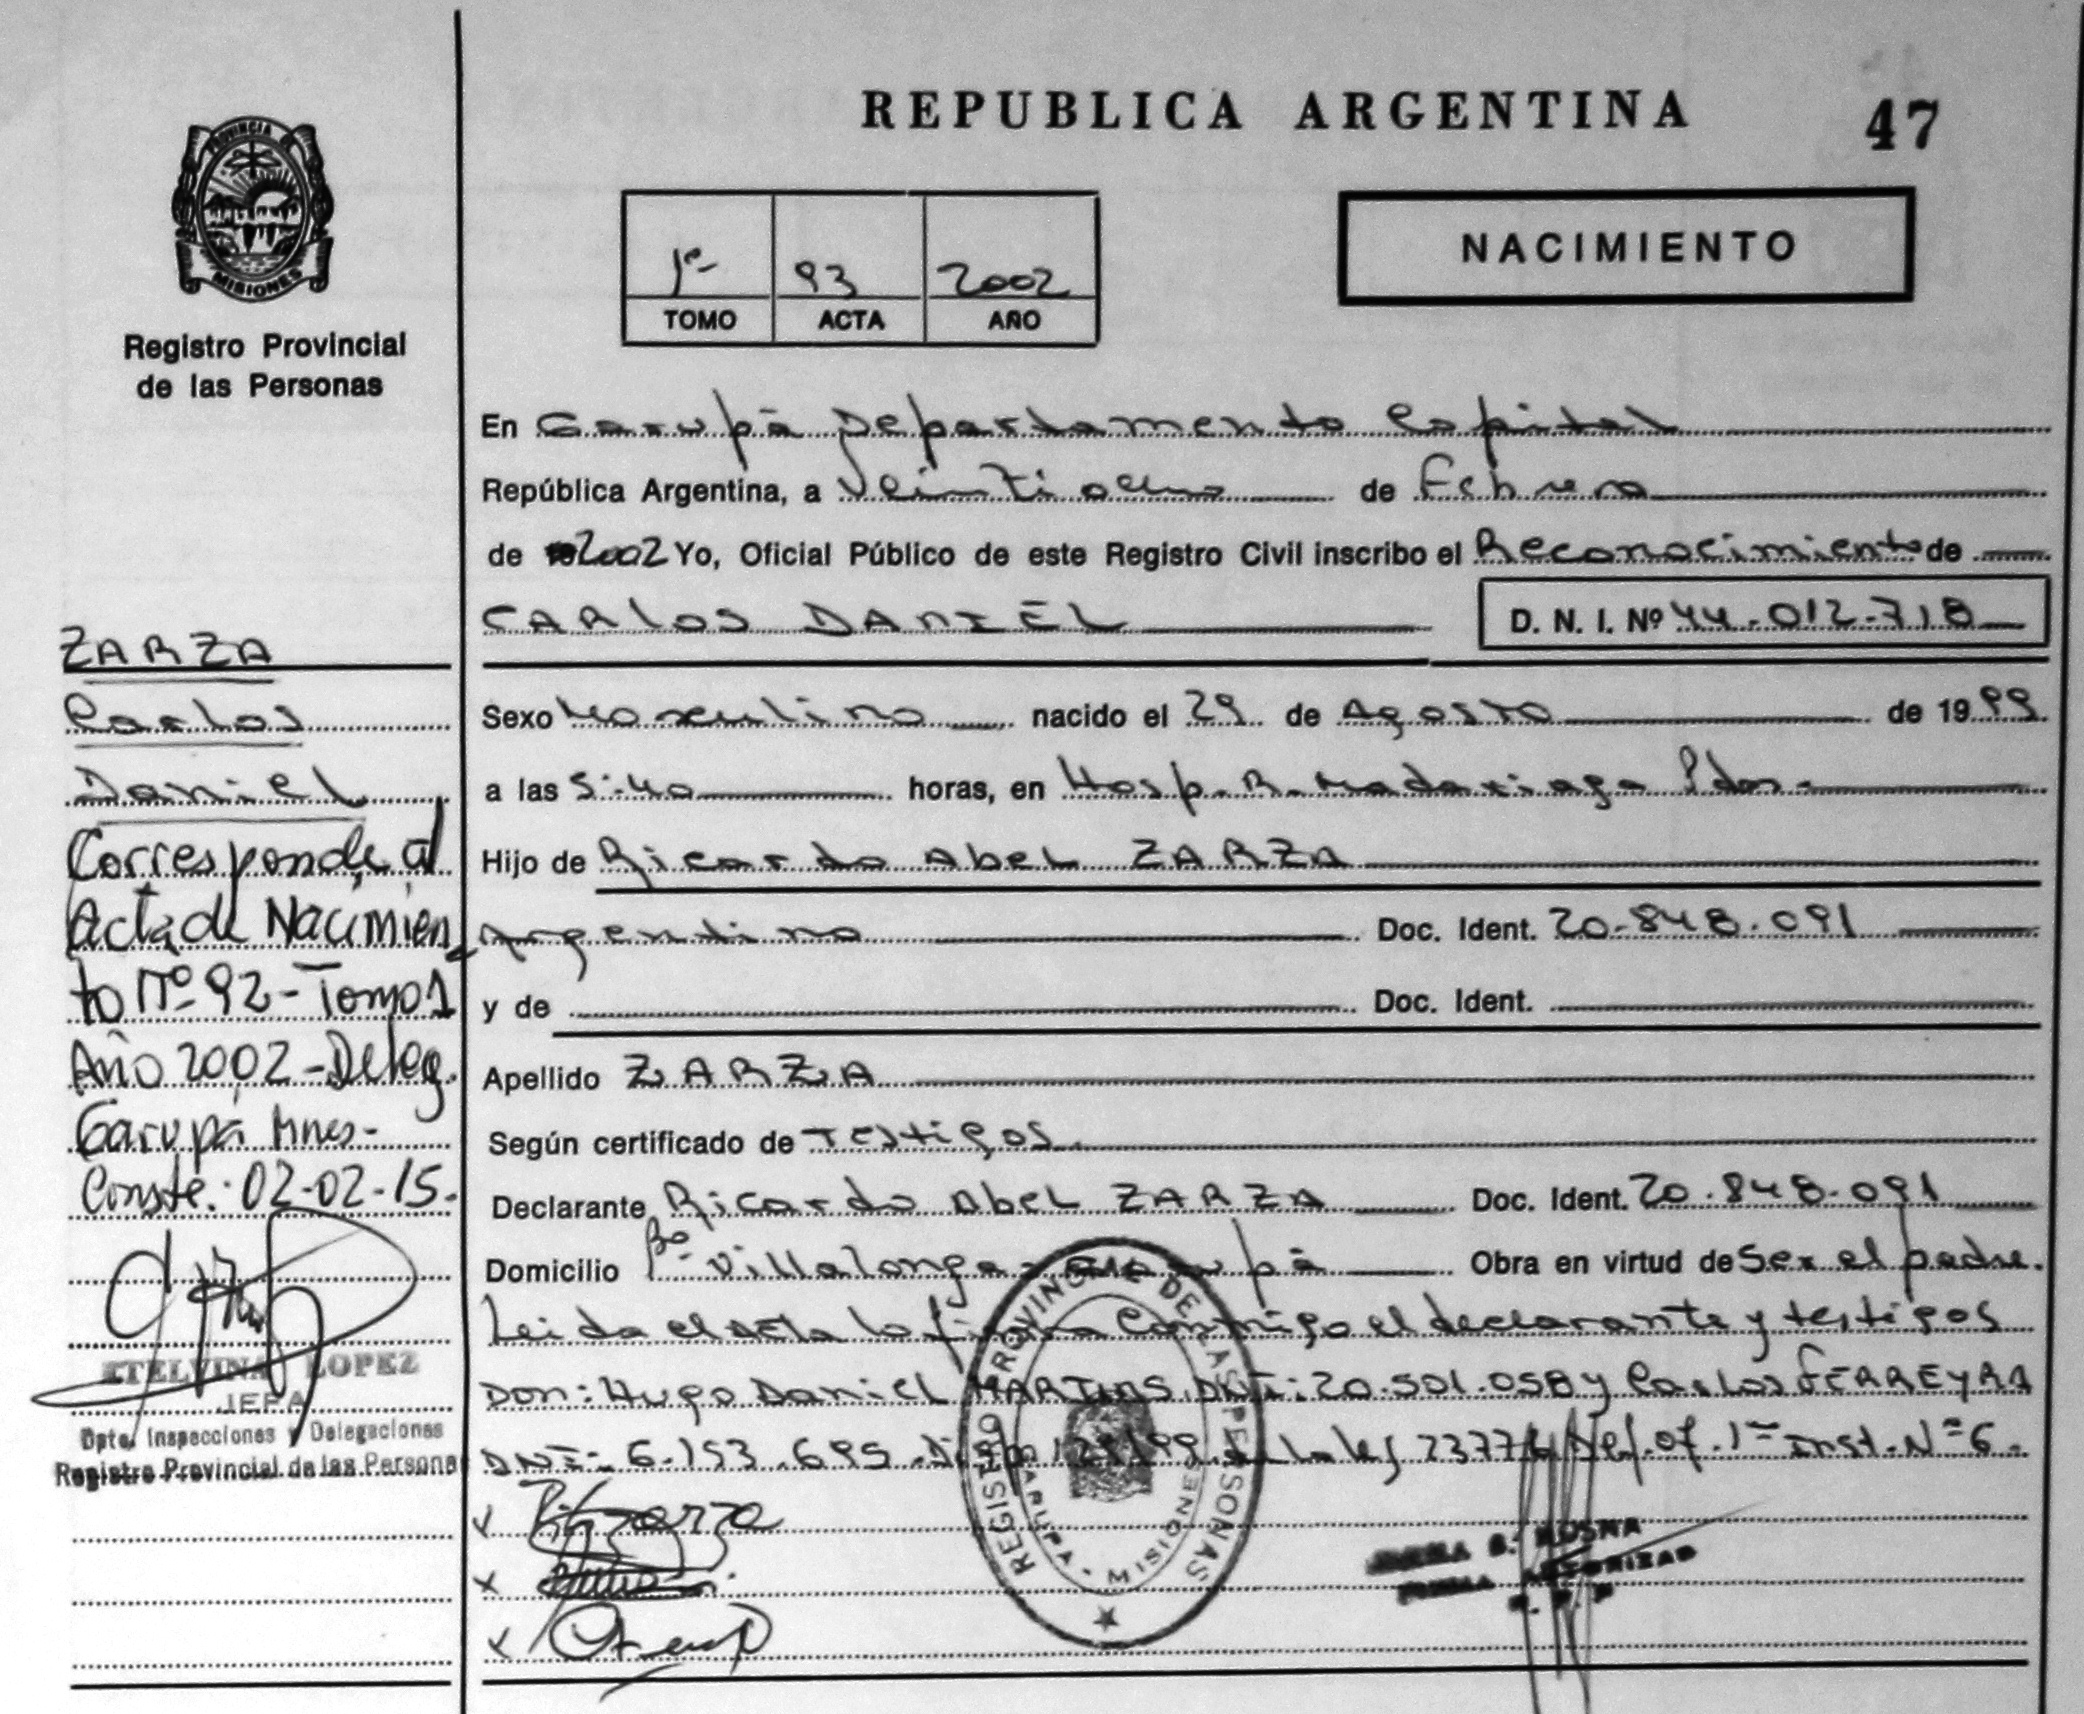 REPUBLICA ARGENTINA
47
PROVINCIA DE
MISIONES
Registro Provincial
de las Personas
1º- 93 2002
TOMO ACTA AÑO
NACIMIENTO
En Garupá Departamento Capital
República Argentina, a Veintiocho de Febrero
de 2002 Yo, Oficial Público de este Registro Civil inscribo el Reconocimiento de
CARLOS DANIEL
D. N. I. Nº 44-012-718
Sexo Masculino nacido el 29 de Agosto de 1999
a las 5:40 horas, en Hosp. R. Madariaga Pdas.
Hijo de Ricardo Abel ZARZA
Argentino Doc. Ident. 20-848.091
y de Doc. Ident.
Apellido ZARZA
Según certificado de Testigos.
Declarante Ricardo Abel ZARZA Doc. Ident. 20.848.091
Domicilio Bº Villalonga - Garupá Obra en virtud de Ser el padre.
Leida el acta la firma Conmigo el declarante y testigos
Don: Hugo Daniel MARTINS DNI: 20.501.058 y Carlos FERREYRA
DNI: 6.153.695. la ley 23776 Def. of. 1ª inst. Nº 6.
ZARZA
Carlos
Daniel
Corresponde al
Acta de Nacimien
to Nº 92 - Tomo 1
Año 2002 - Deleg.
Garupá Mnes -
Conste: 02-02-15.
ETELVINA LOPEZ
JEFA
Dpto. Inspecciones y Delegaciones
Registro Provincial de las Persona
REGISTRO PROVINCIAL DE LAS PERSONAS
GARUPA - MISIONES